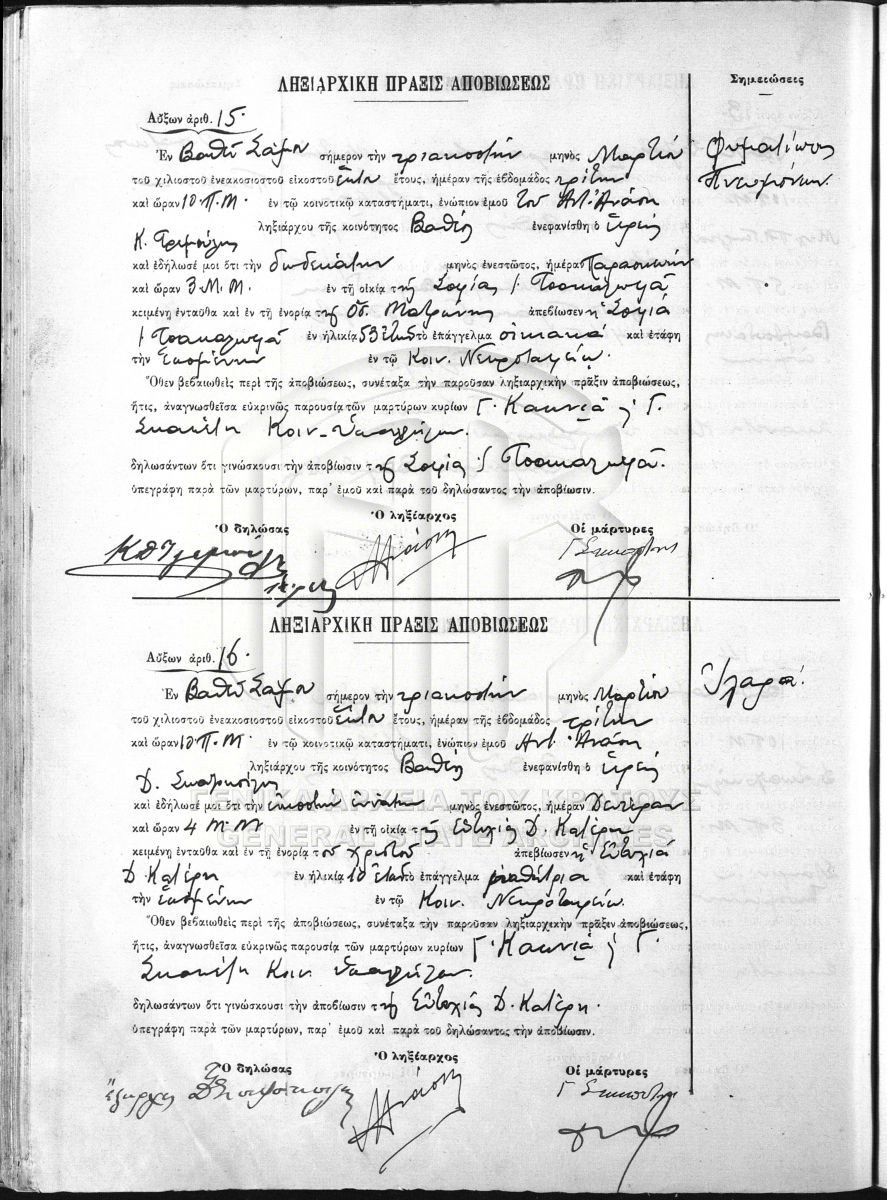 ΛΗΞΙΑΡΧΙΚΗ ΠΡΑΞΙΣ ΑΠΟΒΙΩΣΕΩΣ
Σημειώσεις
Αὔξων ἀριθ. 15.
Ἐν Βαθεῖ Σάμου σήμερον τὴν τριακοστὴν μηνὸς Μαρτίου
Φυματίωσις
τοῦ χιλιοστοῦ ἐνεακοσιοστοῦ εἰκοστοῦ ἕκτου ἔτους, ἡμέραν τῆς ἑβδομάδος τρίτην
Πνευμόνων.
καὶ ὥραν 10 Π.Μ. ἐν τῷ κοινοτικῷ καταστήματι, ἐνώπιον ἐμοῦ τοῦ Ἀντ.
ληξιάρχου τῆς κοινότητος Βαθέος ἐνεφανίσθη ὁ ἱερεὺς
Κ.
καὶ ἐδήλωσέ μοι ὅτι τὴν δωδεκάτην μηνὸς ἐνεστῶτος, ἡμέραν Παρασκευὴν
καὶ ὥραν 3 Μ.Μ. ἐν τῇ οἰκίᾳ τῆς Σοφίας
κειμένῃ ἐνταῦθα καὶ ἐν τῇ ἐνορίᾳ τῆς Ὁσ. Ματρώνης ἀπεβίωσεν ἡ Σοφία
ἐν ἡλικίᾳ 53 ἐτῶν τὸ ἐπάγγελμα οἰκιακά καὶ ἐτάφη
τὴν ἑπομένην ἐν τῷ Κοιν. Νεκροταφείῳ.
Ὅθεν βεβαιωθεὶς περὶ τῆς ἀποβιώσεως, συνέταξα τὴν παροῦσαν ληξιαρχικὴν πρᾶξιν ἀποβιώσεως,
ἥτις, ἀναγνωσθεῖσα εὐκρινῶς παρουσίᾳ τῶν μαρτύρων κυρίων Γ. Γ.
Κοιν. ὑπαλλήλων.
δηλωσάντων ὅτι γινώσκουσι τὴν ἀποβίωσιν τῆς Σοφίας
ὑπεγράφη παρὰ τῶν μαρτύρων, παρ' ἐμοῦ καὶ παρὰ τοῦ δηλώσαντος τὴν ἀποβίωσιν.
Ὁ δηλώσας Ὁ ληξίαρχος Οἱ μάρτυρες
ΛΗΞΙΑΡΧΙΚΗ ΠΡΑΞΙΣ ΑΠΟΒΙΩΣΕΩΣ
Αὔξων ἀριθ. 16.
Ἐν Βαθεῖ Σάμου σήμερον τὴν τριακοστὴν μηνὸς Μαρτίου
Ἱλαρά.
τοῦ χιλιοστοῦ ἐνεακοσιοστοῦ εἰκοστοῦ ἕκτου ἔτους, ἡμέραν τῆς ἑβδομάδος τρίτην
καὶ ὥραν 10 Π.Μ ἐν τῷ κοινοτικῷ καταστήματι, ἐνώπιον ἐμοῦ Ἀντ.
ληξιάρχου τῆς κοινότητος Βαθέος ἐνεφανίσθη ὁ ἱερεὺς
Δ.
καὶ ἐδήλωσέ μοι ὅτι τὴν εἰκοστὴν ἐννάτην μηνὸς ἐνεστῶτος, ἡμέραν Δευτέραν
ΓΕΝΙΚΑ ΑΡΧΕΙΑ ΤΟΥ ΚΡΑΤΟΥΣ
καὶ ὥραν 4 Μ.Μ ἐν τῇ οἰκίᾳ τῆς Εὐτυχίας Δ. Κατέρη
GENERAL STATE ARCHIVES
κειμένῃ ἐνταῦθα καὶ ἐν τῇ ἐνορίᾳ τοῦ Χριστοῦ ἀπεβίωσεν ἡ Εὐτυχία
Δ. Κατέρη ἐν ἡλικίᾳ 10 ἐτῶν τὸ ἐπάγγελμα μαθήτρια καὶ ἐτάφη
τὴν ἑπομένην ἐν τῷ Κοιν. Νεκροταφείῳ.
Ὅθεν βεβαιωθεὶς περὶ τῆς ἀποβιώσεως, συνέταξα τὴν παροῦσαν ληξιαρχικὴν πρᾶξιν ἀποβιώσεως,
ἥτις, ἀναγνωσθεῖσα εὐκρινῶς παρουσίᾳ τῶν μαρτύρων κυρίων Γ. Γ.
Κοιν. ὑπαλλήλων.
δηλωσάντων ὅτι γινώσκουσι τὴν ἀποβίωσιν τῆς Εὐτυχίας Δ. Κατέρη.
ὑπεγράφη παρὰ τῶν μαρτύρων, παρ' ἐμοῦ καὶ παρὰ τοῦ δηλώσαντος τὴν ἀποβίωσιν.
Ὁ δηλώσας Ὁ ληξίαρχος Οἱ μάρτυρες